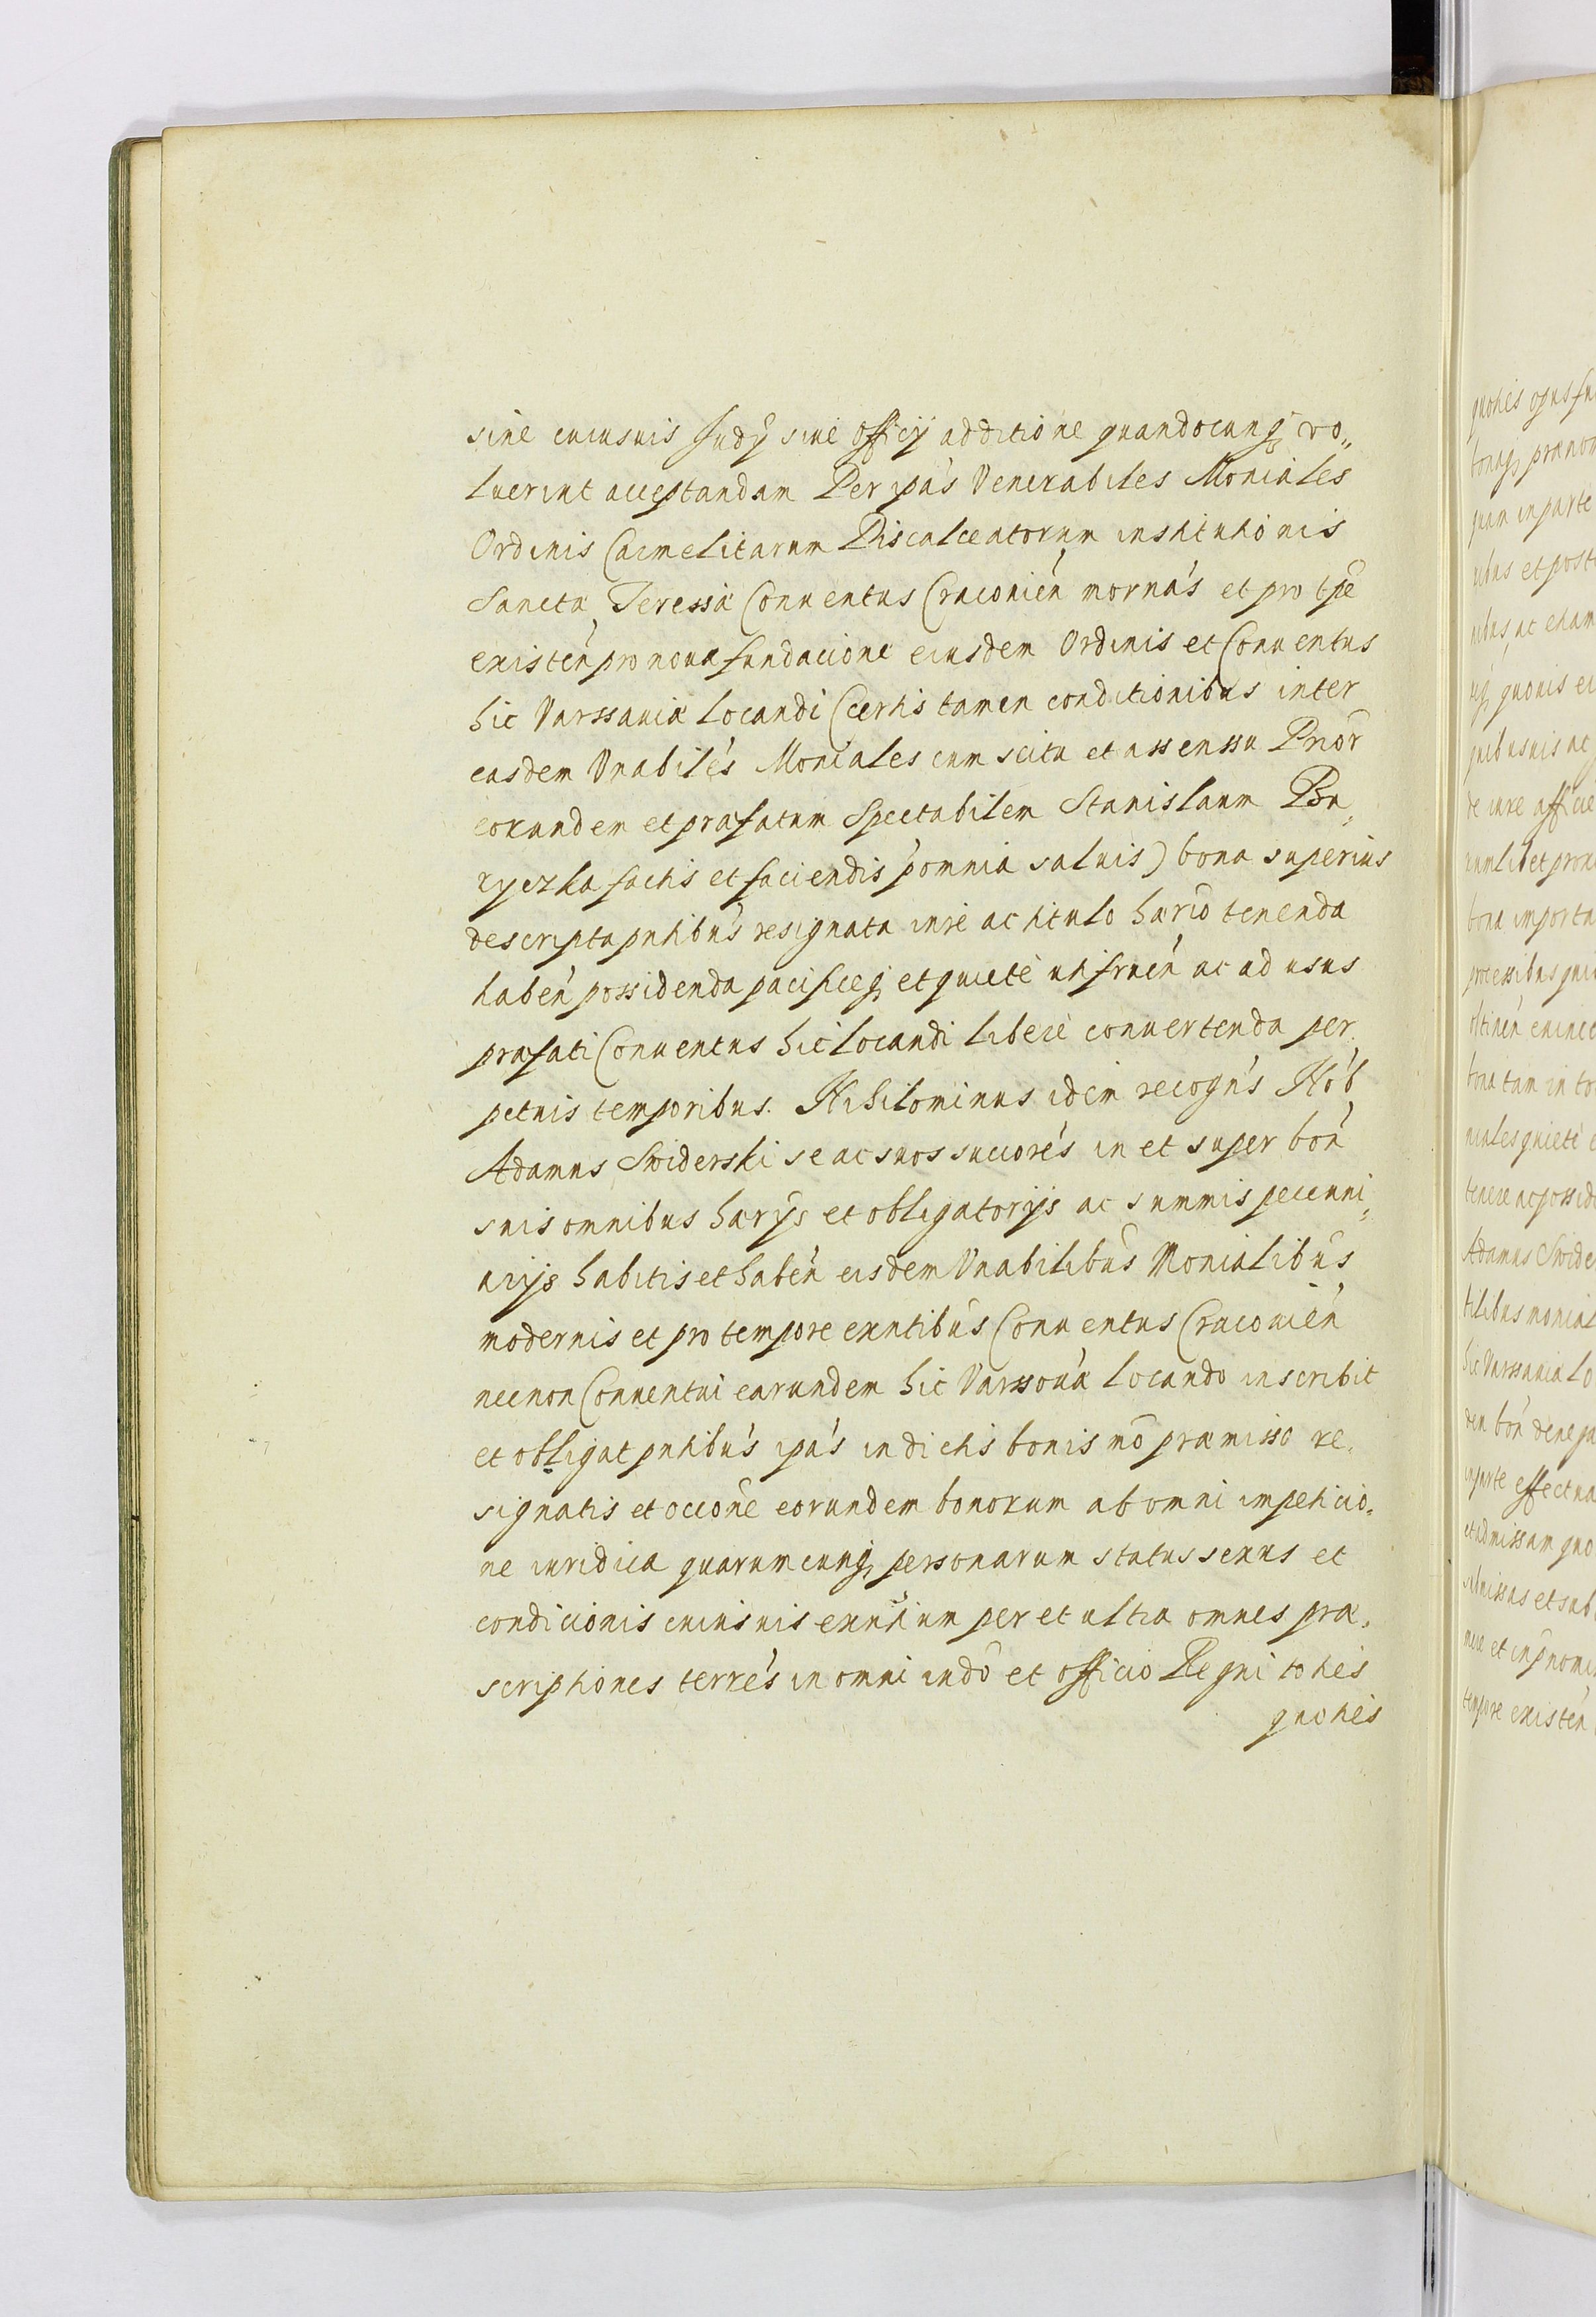 sine cuiusuis Judÿ siue officÿ additione quandocunq; vo„
luerint acceptandam Per ipas Venerabiles Moniales
Ordinis Carmelitarum Discalceatorum institutionis
Sanctæ Teressiæ Conuentus Cracouien mornas et pro tpe
existen pro noua fundacione eiusdem Ordinis et Conuentus
hic Varssauiæ locandi (certis tamen conditionibus inter
easdem Vnabiles Moniales cum scitu et assenssu Prior
eorundem et præfatum Spectabilem Stanislaum Bu„
ryczka factis et faciendis p omnia saluis) bona superius
descripta pntibus resignata iure ac titulo hærio tenenda
haben possidenda pacificeq; et quiete utifruen ac ad usus
præfati Conuentus hic locandi libere conuertenda per„
petuis temporibus. Nihilominus idem recogns Nob
Adamus Swiderski se ac suos succores in et super bon
suis omnibus hærÿs et obligatorÿs ac summis pecuni„
arÿs habitis et haben eisdem Vnabilibus Monialibus
modernis et pro tempore exntibus Conuentus Cracouien
necnon Conuentui earundem hic Varssouiæ locando inscribit
et obligat pntibus ipas in dictis bonis mo præmisso re„
signatis et occone eorundem bonorum ab omni impeticio„
ne iuridica quarumcunq; personarum status sexus et
condicionis cuiusuis exntium per et ultra omnes præ„
scriptiones terres in omni iudo et officio Regni toties
quoties